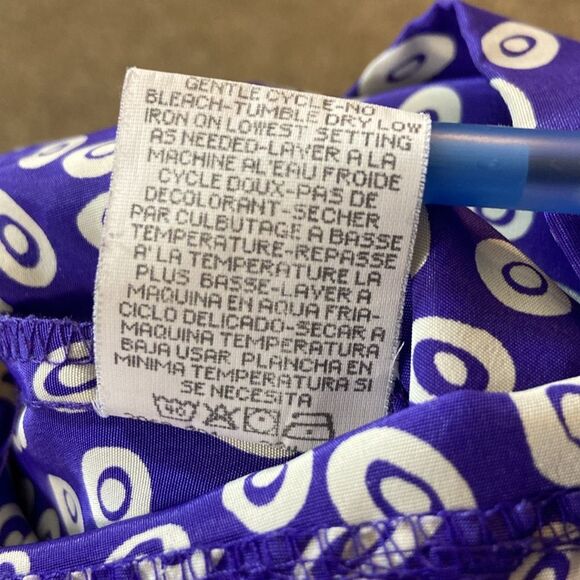 GENTLE CYCLE-NO
BLEACH-TUMBLE DRY LOW
IRON ON LOWEST SETTING
AS NEEDED-LAVER A LA
MACHINE AL'EAU FROIDE
CYCLE DOUX-PAS DE
DECOLORANT-SECHER
PAR CULBUTAGE A BASSE
TEMPERATURE-REPASSE
A LA TEMPERATURE LA
PLUS BASSE-LAVER A
MAQUINA EN AQUA FRIA-
CICLO DELICADO-SECAR A
MAQUINA TEMPERATURA
BAJA USAR PLANCHA EN
MINIMA TEMPERATURA SI
SE NECESITA
40